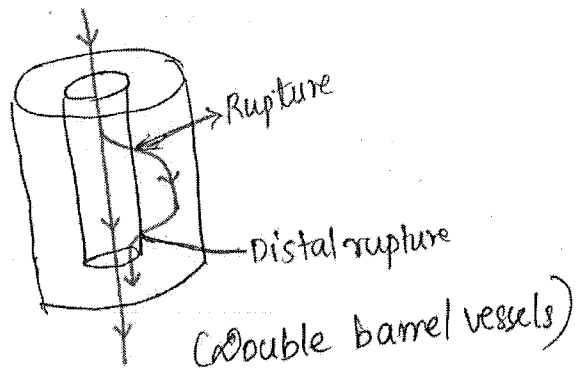 Rupture
Distal rupture
(Double barrel vessels)